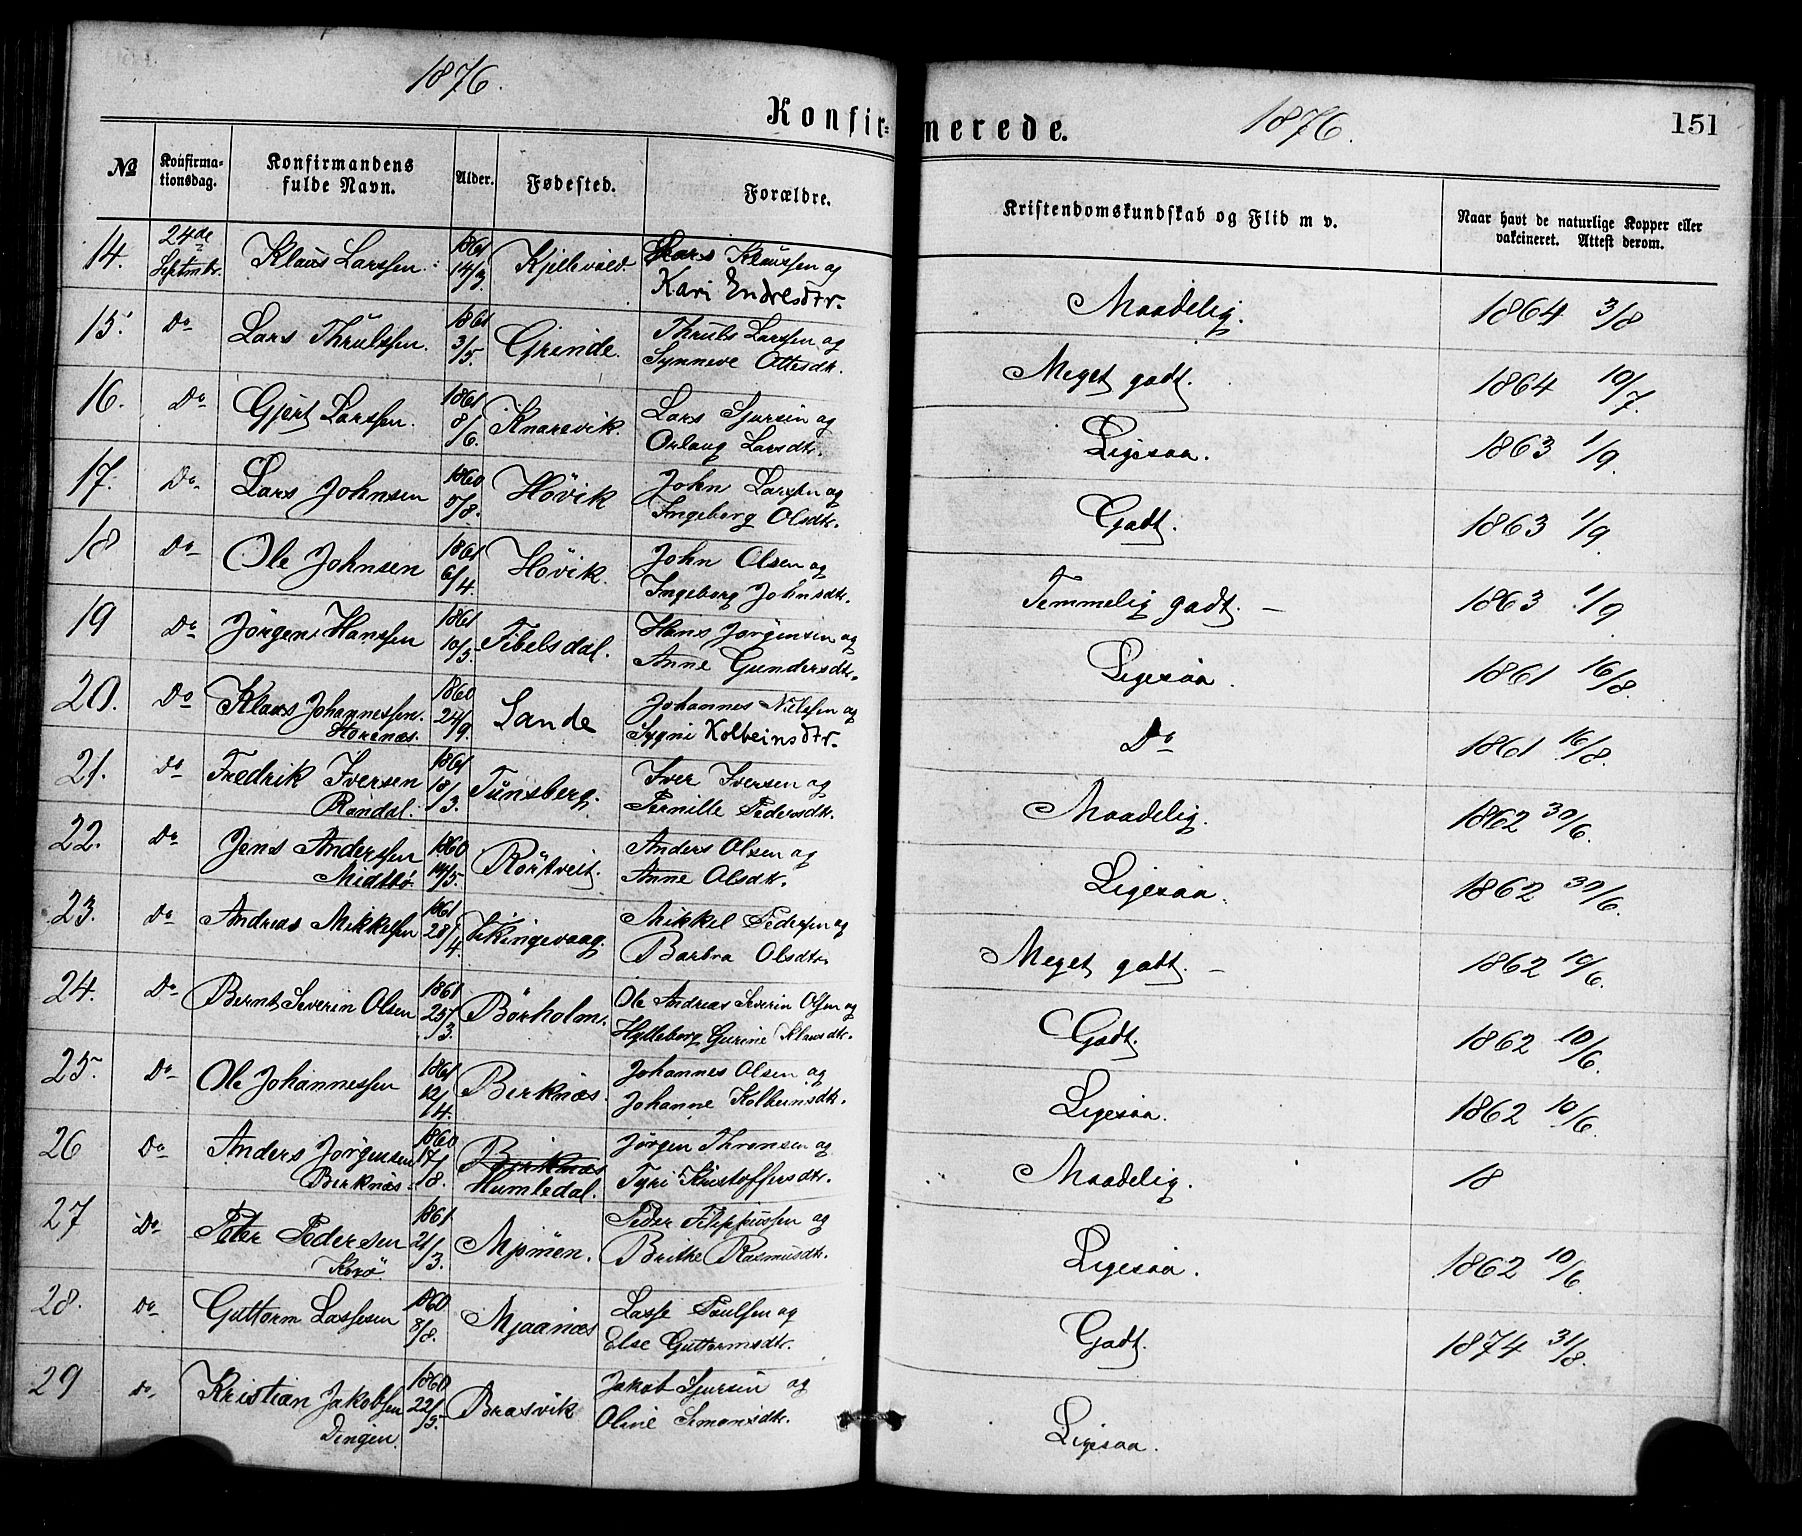 1876. 1876. 151
Konfir=merede.
No Konfirma-tionsdag. Konfirmandens fulde Navn. Alder. Fødested. Forældre. Kristendomskundskab og Flid m v. Naar havt de naturlige Kopper eller vakcineret. Attest derom.
14. 24de Septmbr. Klaus Larssen. 1861 14/3. Kjillevold Lars Klaussen og
Kari Endresdtr. Maadelig. 1864 3/8
15. Do Lars Thrulssen. 1861 3/5. Grinde. Thruls Larssen og
Synneve Ottesdtr. Meget godt. 1864 10/7.
16. Do Gjert Larssen. 1861 8/6. Knarevik. Lars Sjursen og
Orlaug Larsdtr. Ligesaa. 1863 1/9.
17. Do Lars Johnsen 1860 5/8. Hövik John Larssen og
Ingeborg Olsdtr. Godt. 1863 1/9.
18 Do Ole Johnsen 1861 6/4. Hövik. John Olsen og
Ingeborg Johnsdtr. Temmelig godt. — 1863 1/9
19 Do Jörgen Hanssen 1861 10/5. Tibelsdal. Hans Jörgensen og
Anne Gundersdtr. Ligesaa. 1861 16/8.
20. Do Klaus Johannessen. 1860 24/9. Sande Johannes Nilssen og
Storenæs. Sygni Kolbeinsdtr. Do 1861 16/8.
21. Do Fredrik Iversen 1861 18/3. Tunsberg. Iver Iversen og
Randal. Pernille Pedersdtr. Maadelig. 1862 30/6.
22. Do Jens Anderssen 1860 14/5. Rörtveit. Anders Olsen og
Midtbö Anne Olsdtr. Ligesaa. 1862 30/6.
23. Do Andreas Mikkelsen 1861 28/4. Vikingevaag. Mikkel Pedersen og
Barbra Olsdtr. Meget godt. — 1862 10/6.
24. Do Bernt Severin Olsen 1861 25/3. Börholm. Ole Andreas Severin Olsen og
Hylleborg Gurine Klausdtr. Godt. 1862 10/6.
25. Do Ole Johannessen 1861 12/4. Berknæs. Johannes Olsen og
Johanne Kolbeinsdtr. Ligesaa. 1862 10/6.
26 Do Anders Jörgensen 1860 17/8. Berknæs Jörgen Thronsen og
Berknæs. Humledal. Tyri Kristoffersdtr. Maadelig. 18
27 Do Peter Pedersen 1861 21/3. Mjömen. Peder Filippussen og
Korö Brithe Rasmusdtr. Ligesaa. 1862 10/6
28. Do Guttorm Lassesen 1860 8/8. Mjaanæs Lasse Poulsen og
Else Guttormsdtr. Godt. 1874 31/8.
29 Do. Kristian Jakobsen 1860 22/5. Brosvik Jakob Sjursen og
Dingen. Oline Simonsdtr. Ligesaa.